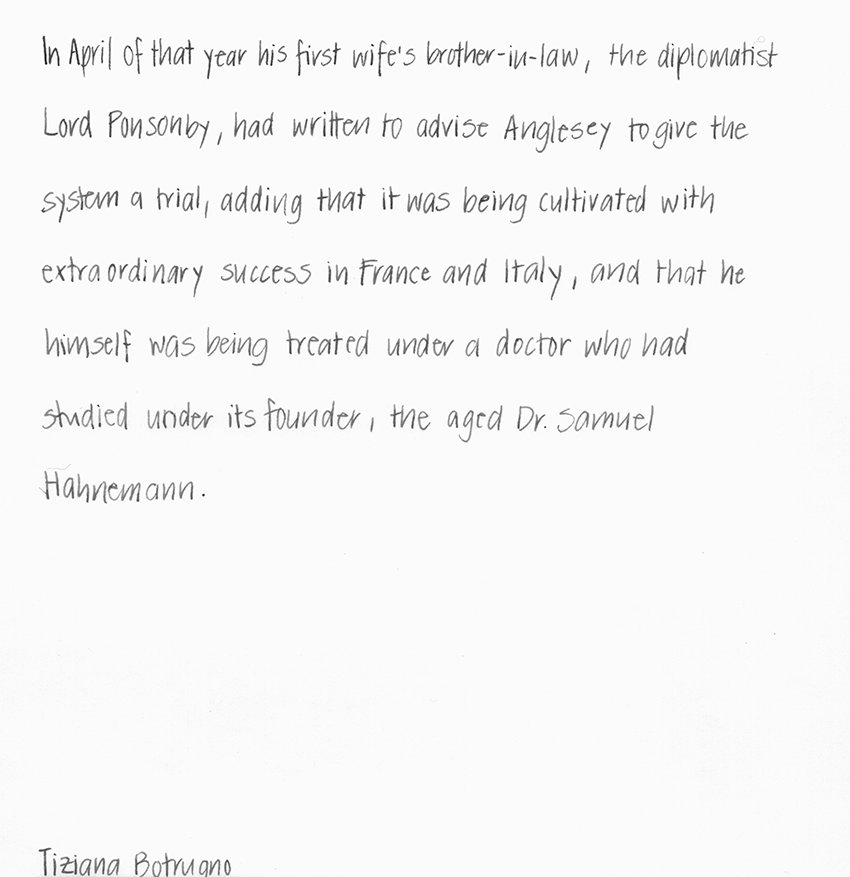 In April of that year his first wife's brother-in-law, the diplomatist
Lord Ponsonby, had written to advise Anglesey to give the
system a trial, adding that it was being cultivated with
extraordinary success in France and Italy, and that he
himself was being treated under a doctor who had
studied under its founder, the aged Dr. Samuel
Hahnemann.
Tiziana Botrugno